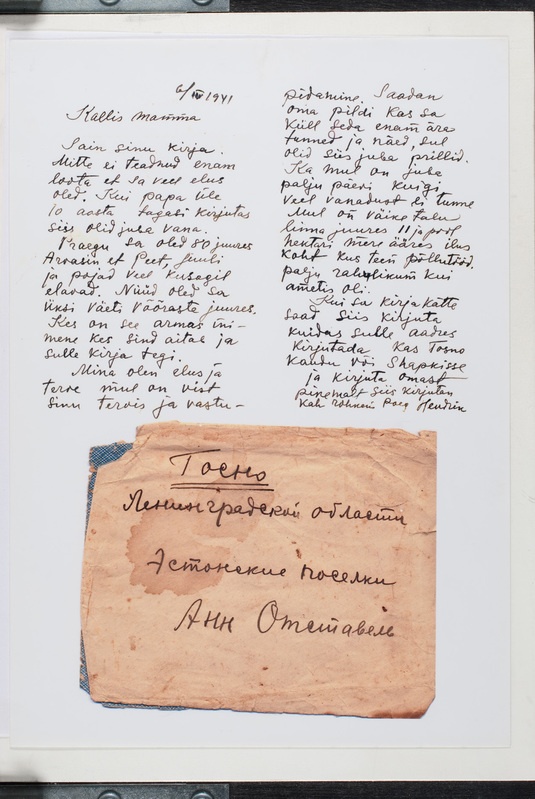 6/IV 1941
Kallis mamma
Sain sinu kirja.
Mitte ei teadnud enam
loota et sa veel elus
oled. Kui papa üle
10 aasta tagasi kirjutas
siis olid juba vana.
Praegu sa oled 80 juures
Arvasin et Peet, Juuli
ja pojad veel kusagil
elavad. Nüüd oled sa
üksi väeti võõraste juures.
Kes on see armas ini-
mene kes sind aitab ja
sulle kirja tegi.
Mina olen elus ja
terve mul on vist
sinu tervis ja vastu-
pidamine. Saadan
oma pildi kas sa
küll seda enam ära
tunned ja näed, sul
olid siis juba prillid.
Ka mul on juba
palju päevi kuigi
veel vanadust ei tunne
Mul on väike talu
linna juures 11 ja pool
hektari mere ääres ilus
koht kus teen põllutööd.
palju rahulikum kui
ametis oli.
Kui sa kirja kätte
saad siis kirjuta
kuidas sulle aadres
kirjutada kas Tosno
kaudu või Shapkisse
ja kirjuta omast
pikemalt siis kirjutan
ka rohkem Poeg Hendrik
Тосно
Ленинградской области
Эстонские поселки
Анн Отставель